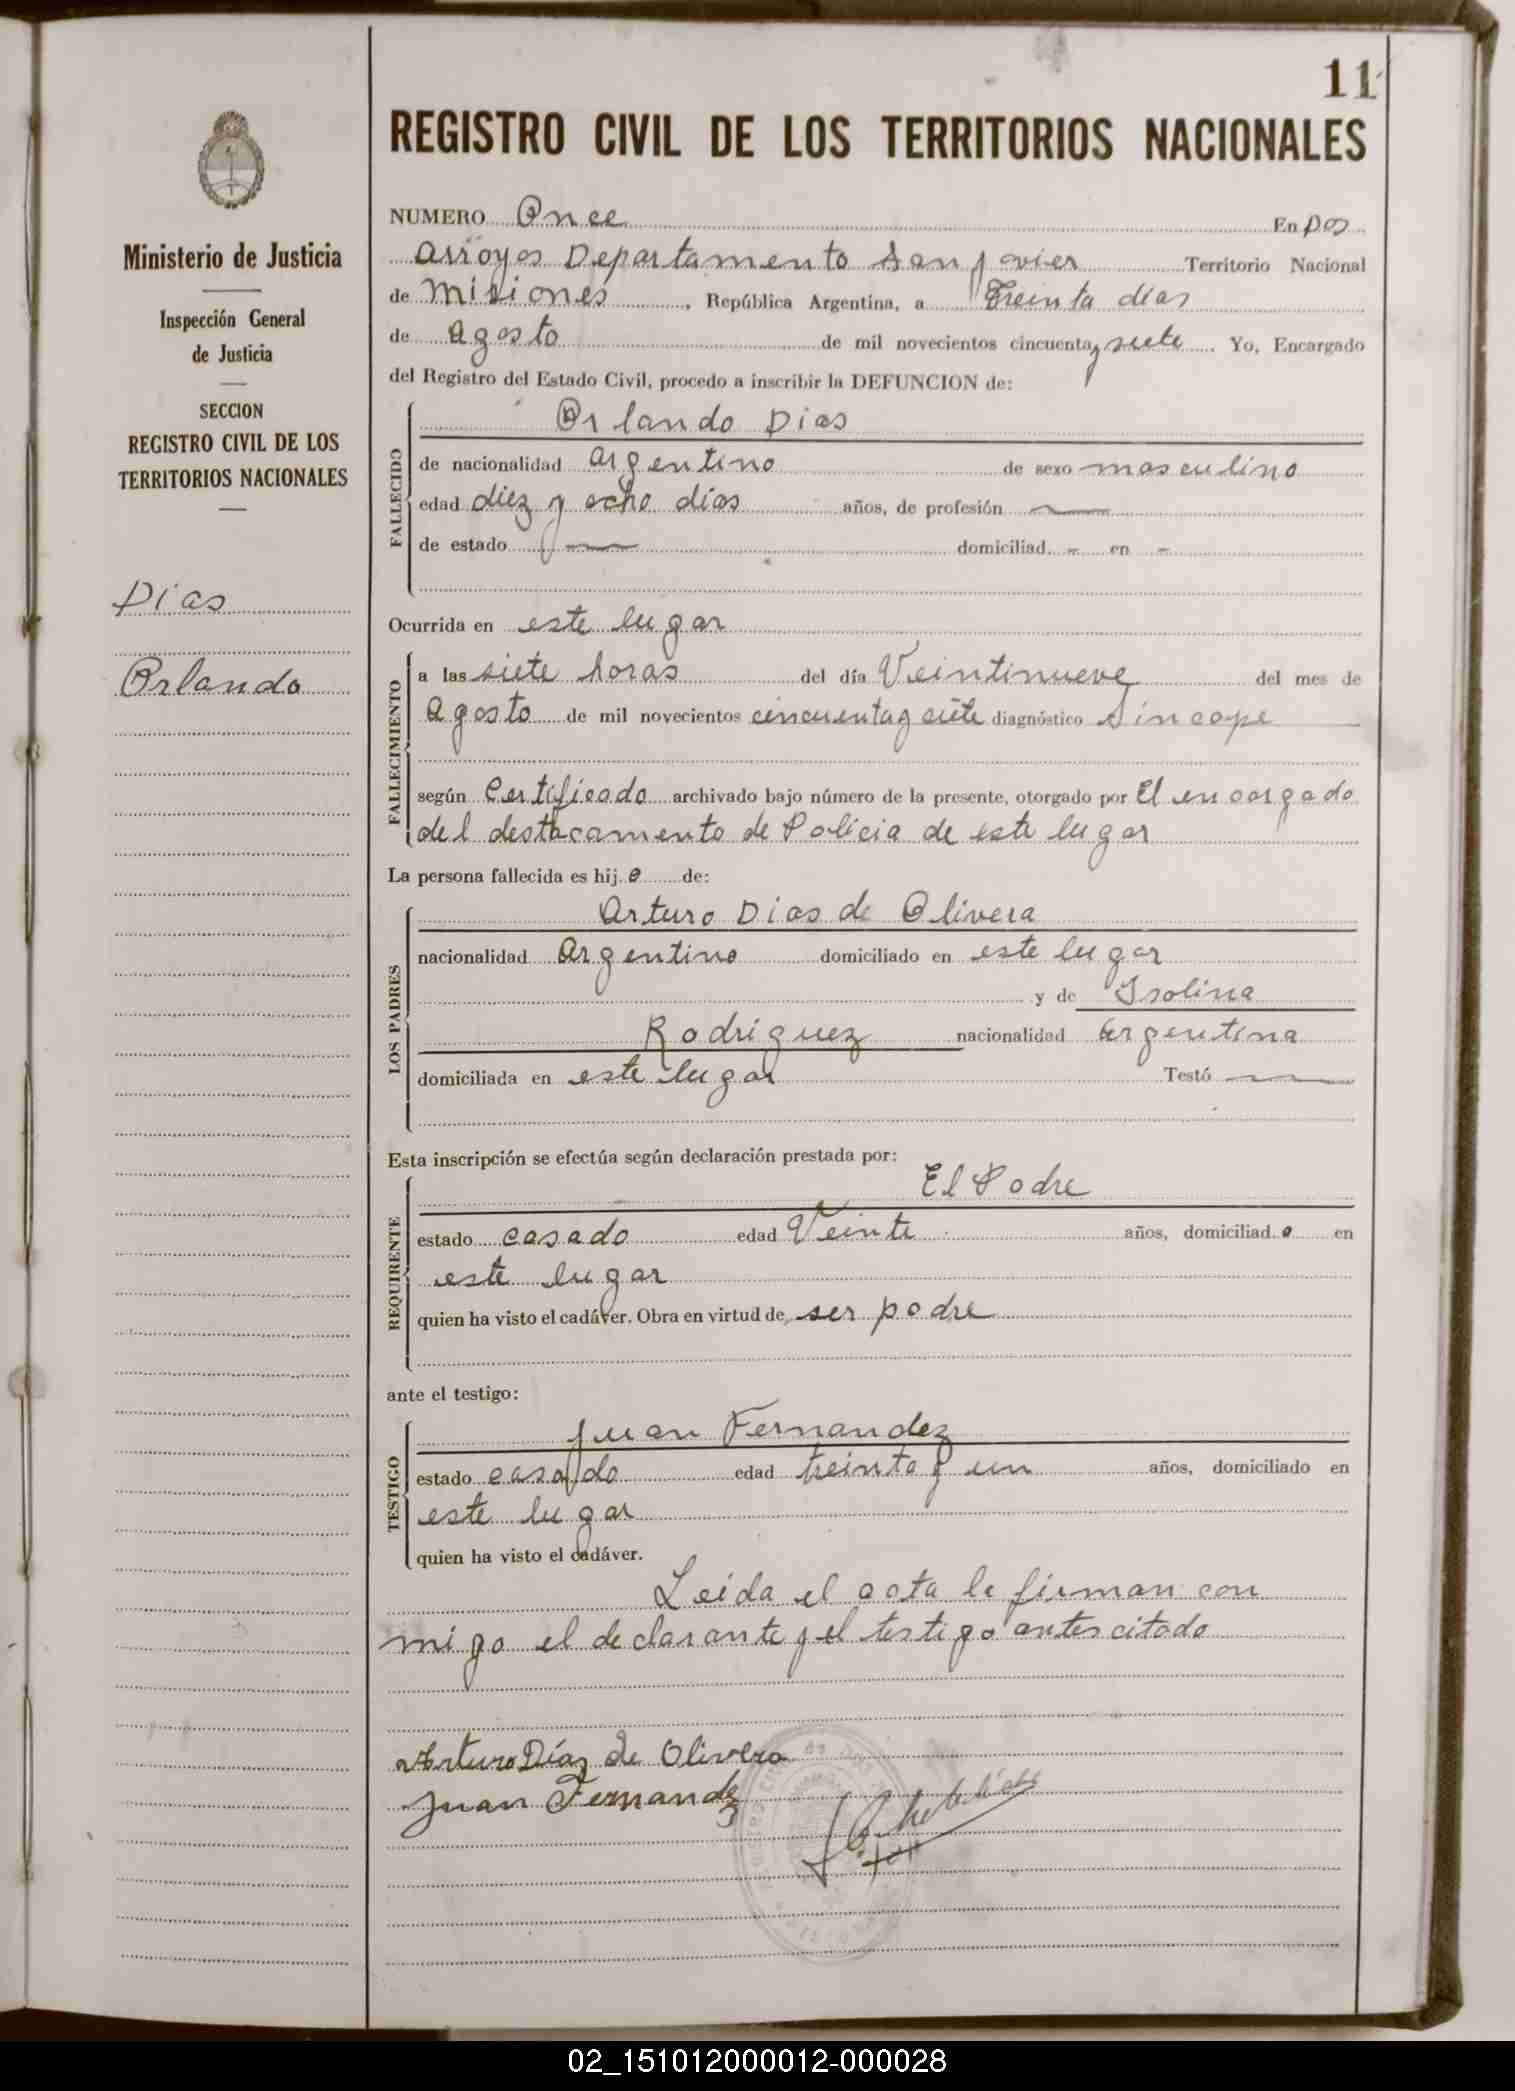 11
REGISTRO CIVIL DE LOS TERRITORIOS NACIONALES
Ministerio de Justicia
Inspección General
de Justicia
SECCION
REGISTRO CIVIL DE LOS
TERRITORIOS NACIONALES
Dias
Orlando
NUMERO Once En Dos
Arroyos Departamento San Javier Territorio Nacional
de Misiones, República Argentina, a Treinta dias
de Agosto de mil novecientos cincuenta y siete. Yo, Encargado
del Registro del Estado Civil, procedo a inscribir la DEFUNCION de:
FALLECIDO
Orlando Dias
de nacionalidad argentino de sexo masculino
edad diez y ocho dias años, de profesión —
de estado — domiciliad. - en -
Ocurrida en este lugar
FALLECIMIENTO
a las siete horas del día Veintinueve del mes de
Agosto de mil novecientos cincuenta y siete diagnóstico Sincope
según Certificado archivado bajo número de la presente, otorgado por El encargado
del destacamento de Policia de este lugar
La persona fallecida es hijo de:
LOS PADRES
Arturo Dias de Olivera
nacionalidad Argentino domiciliado en este lugar
y de Isolina
Rodriguez nacionalidad argentina
domiciliada en este lugar Testó —
Esta inscripción se efectúa según declaración prestada por:
REQUIRENTE
El Padre
estado casado edad Veinte años, domiciliado en
este lugar
quien ha visto el cadáver. Obra en virtud de ser padre
ante el testigo:
TESTIGO
Juan Fernandez
estado casado edad treinta y un años, domiciliado en
este lugar
quien ha visto el cadáver.
Leida el acta la firman con
migo el declarante y el testigo antes citado
Arturo Díaz de Olivera
Juan Fernandez
02_151012000012-000028